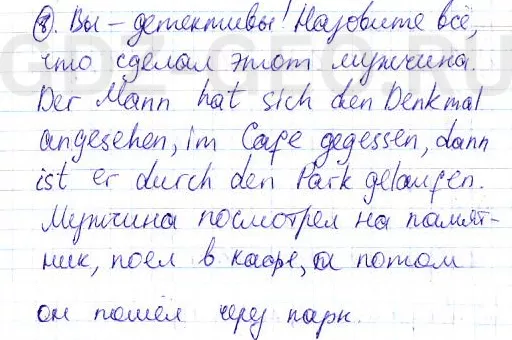 8). Вы – детективы! Назовите всё,
что сделал этот мужчина.
Der Mann hat sich den Denkmal
angesehen, im Cafe gegessen, dann
ist er durch den Park gelaufen.
Мужчина посмотрел на памят-
ник, поел в кафе, а потом
он пошёл через парк.